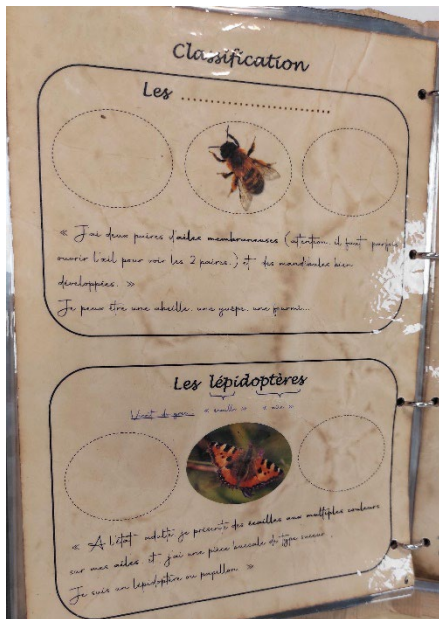 Classification
Les ..............................
« J'ai deux paires d'ailes membraneuses (attention il faut parfois
ouvrir l'œil pour voir les 2 paires..) et des mandibules bien
développées. »
Je peux être une abeille, une guêpe, une fourmi...
Les lépidoptères
« écailles » « ailes »
« A l'état adulte je présente des écailles aux multiples couleurs
sur mes ailes et j'ai une pièce buccale de type suceur.
Je suis un lépidoptère ou papillon. »